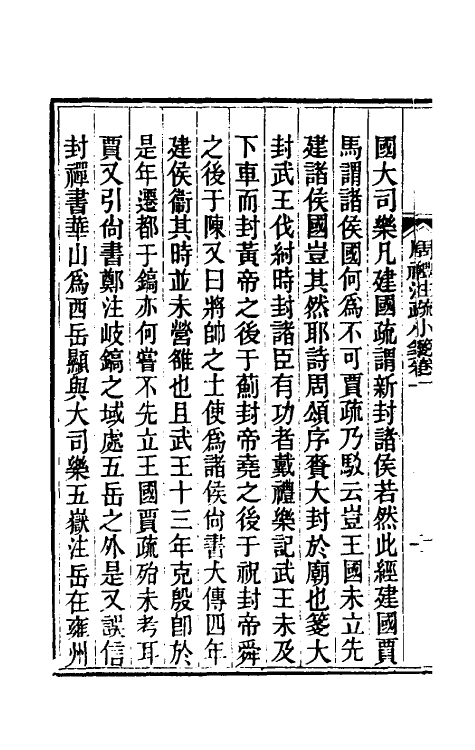 國大司樂凡建國疏謂新封諸侯若然此經建國賈
馬謂諸侯國何爲不可賈疏乃駁云豈王國未立先
建諸侯國豈其然耶詩周頌序賚大封於廟也箋大
封武王伐紂時封諸臣有功者戴禮樂記武王未及
下車而封黃帝之後于薊封帝堯之後于祝封帝舜
之後于陳又曰將帥之士使爲諸侯尙書大傳四年
建侯衞其時並未營雒也且武王十三年克殷卽於
是年遷都于鎬亦何嘗不先立王國賈疏殆未考耳
賈又引尙書鄭注岐鎬之域處五岳之外是又誤信
封禪書華山爲西岳顯與大司樂五嶽注岳在雍州
周禮注疏小箋卷一